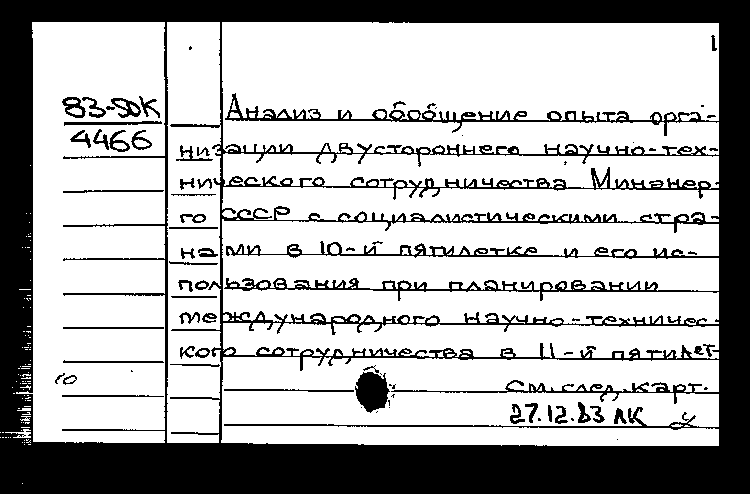 1
83-5DK
4466
Анализ и обобщение опыта орга-
низации двустороннего научно-тех-
нического сотрудничества Минэнер-
го СССР с социалистическими стра-
нами в 10-й пятилетке и его ис-
пользования при планировании
международного научно-техничес-
кого сотрудничества в 11-й пятилет-
10
см. след. карт.
27.12.83 ЛК